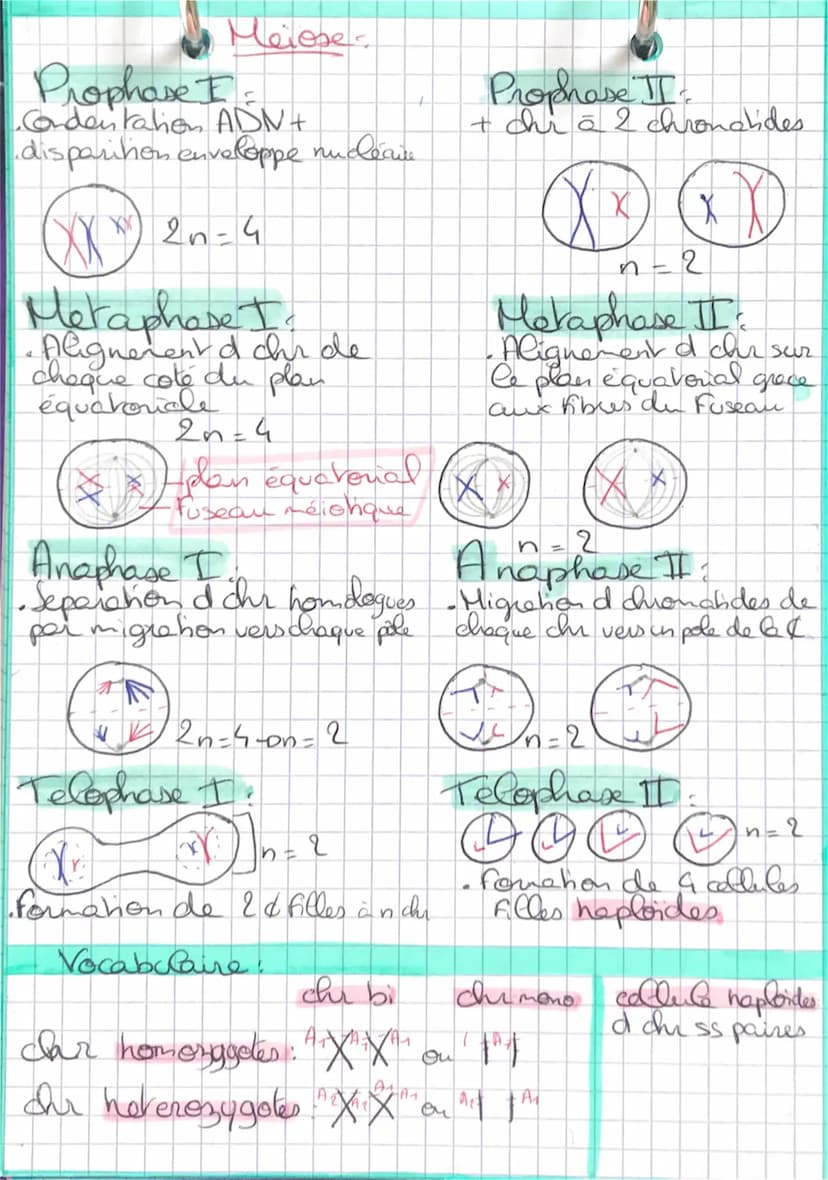 Meiose:
Prophase I:
. Condensation ADN +
. disparition enveloppe nucléaire
2n = 4
Metaphase I:
. Alignement d chr de
chaque coté du plan
équatoriale
2n = 4
plan équatorial
Fuseau méiotique
Anaphase I:
. Separation d chr homologues
par migration vers chaque pôle
2n=4 → n = 2
Telophase I:
n = 2
. Formation de 2 ¢ filles à n chr
Prophase II:
+ chr à 2 chromatides
n = 2
Metaphase II:
. Alignement d chr sur
le plan équatorial grace
aux fibres du Fuseau
n = 2
Anaphase II:
. Migration d chromatides de
chaque chr vers un pole de la ¢
n = 2
Telophase II:
n = 2
. Formation de 4 cellules
filles haploides
Vocabulaire:
chr bi chr mono
chr homozygotes: A1 A1 A1 ou A1
chr heterozygotes: A2 A2 A1 A1 ou A2 A1
cellule haploides
d chr ss paires